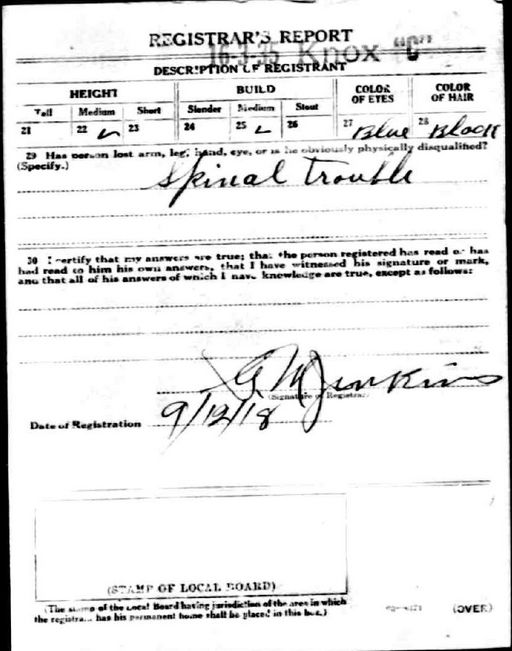 REGISTRAR'S REPORT
16-3-35 Knox "C"
DESCRIPTION OF REGISTRANT
HEIGHT BUILD COLOR OF EYES COLOR OF HAIR
Tall Medium Short Slender Medium Stout
21 22 ✓ 23 24 25 ✓ 26 27 Blue 28 Black
29 Has person lost arm, leg, hand, eye, or is he obviously physically disqualified?
(Specify.) Spinal trouble
30 I certify that my answers are true; that the person registered has read or has
had read to him his own answers, that I have witnessed his signature or mark,
and that all of his answers of which I have knowledge are true, except as follows:
G M Jenkins
(Signature of Registrar)
Date of Registration 9/12/18
(STAMP OF LOCAL BOARD)
(The stamp of the Local Board having jurisdiction of the area in which
the registrant has his permanent home shall be placed in this box.)
(OVER)